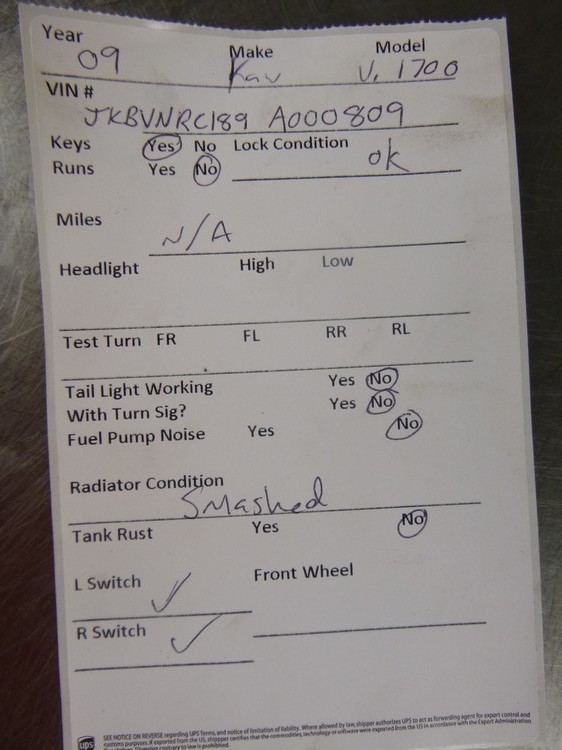 Year Make Model
09 Kaw V. 1700
VIN #
JKBVNRC189 A000809
Keys Yes No Lock Condition
ok
Runs Yes No
Miles
N/A
Headlight High Low
Test Turn FR FL RR RL
Tail Light Working Yes No
With Turn Sig? Yes No
Fuel Pump Noise Yes No
Radiator Condition
Smashed
Tank Rust Yes No
L Switch ✓ Front Wheel
R Switch ✓
ups SEE NOTICE ON REVERSE regarding UPS Terms, and notice of limitation of liability. Where allowed by law, shipper authorizes UPS to act as forwarding agent for export control and
customs purposes. If exported from the US, shipper certifies that the commodities, technology or software were exported from the US in accordance with the Export Administration
Regulations. Diversion contrary to law is prohibited.